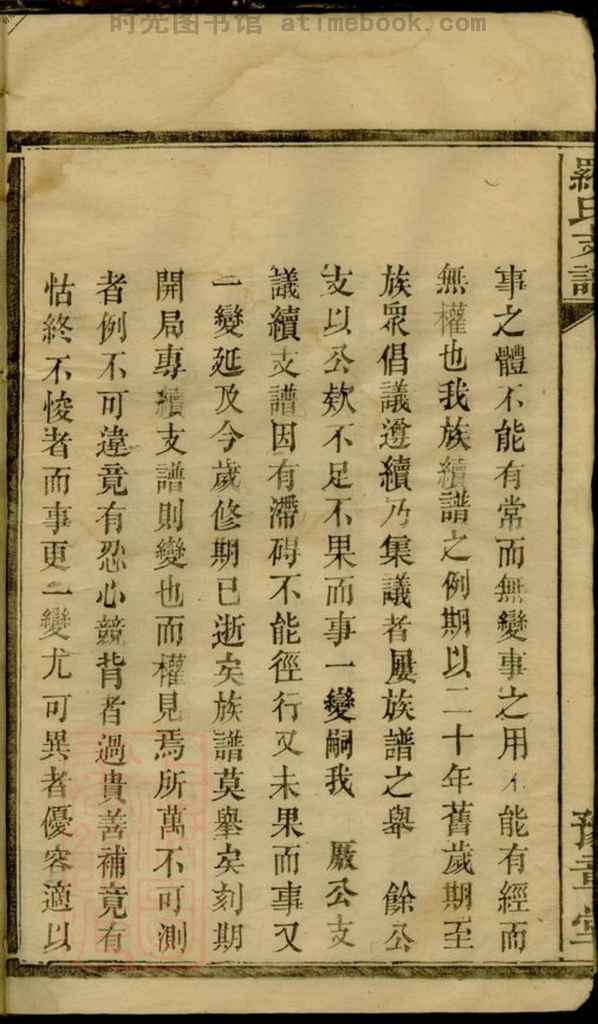 时光图书馆 atimebook.com
羅氏支譜
豫章堂
事之體不能有常而無變事之用不能有經而
無權也我族續譜之例期以二十年舊歲期至
族衆倡議遵續乃集議者屢族譜之舉 餘公
支以公欵不足不果而事一變嗣我 厫公支
議續支譜因有滯碍不能徑行又未果而事又
一變延及今歲修期已逝矣族譜莫舉矣刻期
開局專續支譜則變也而權見焉所萬不可測
者例不可違竟有忍心競背者過貴善補竟有
怙終不悛者而事更一變尤可異者優容適以